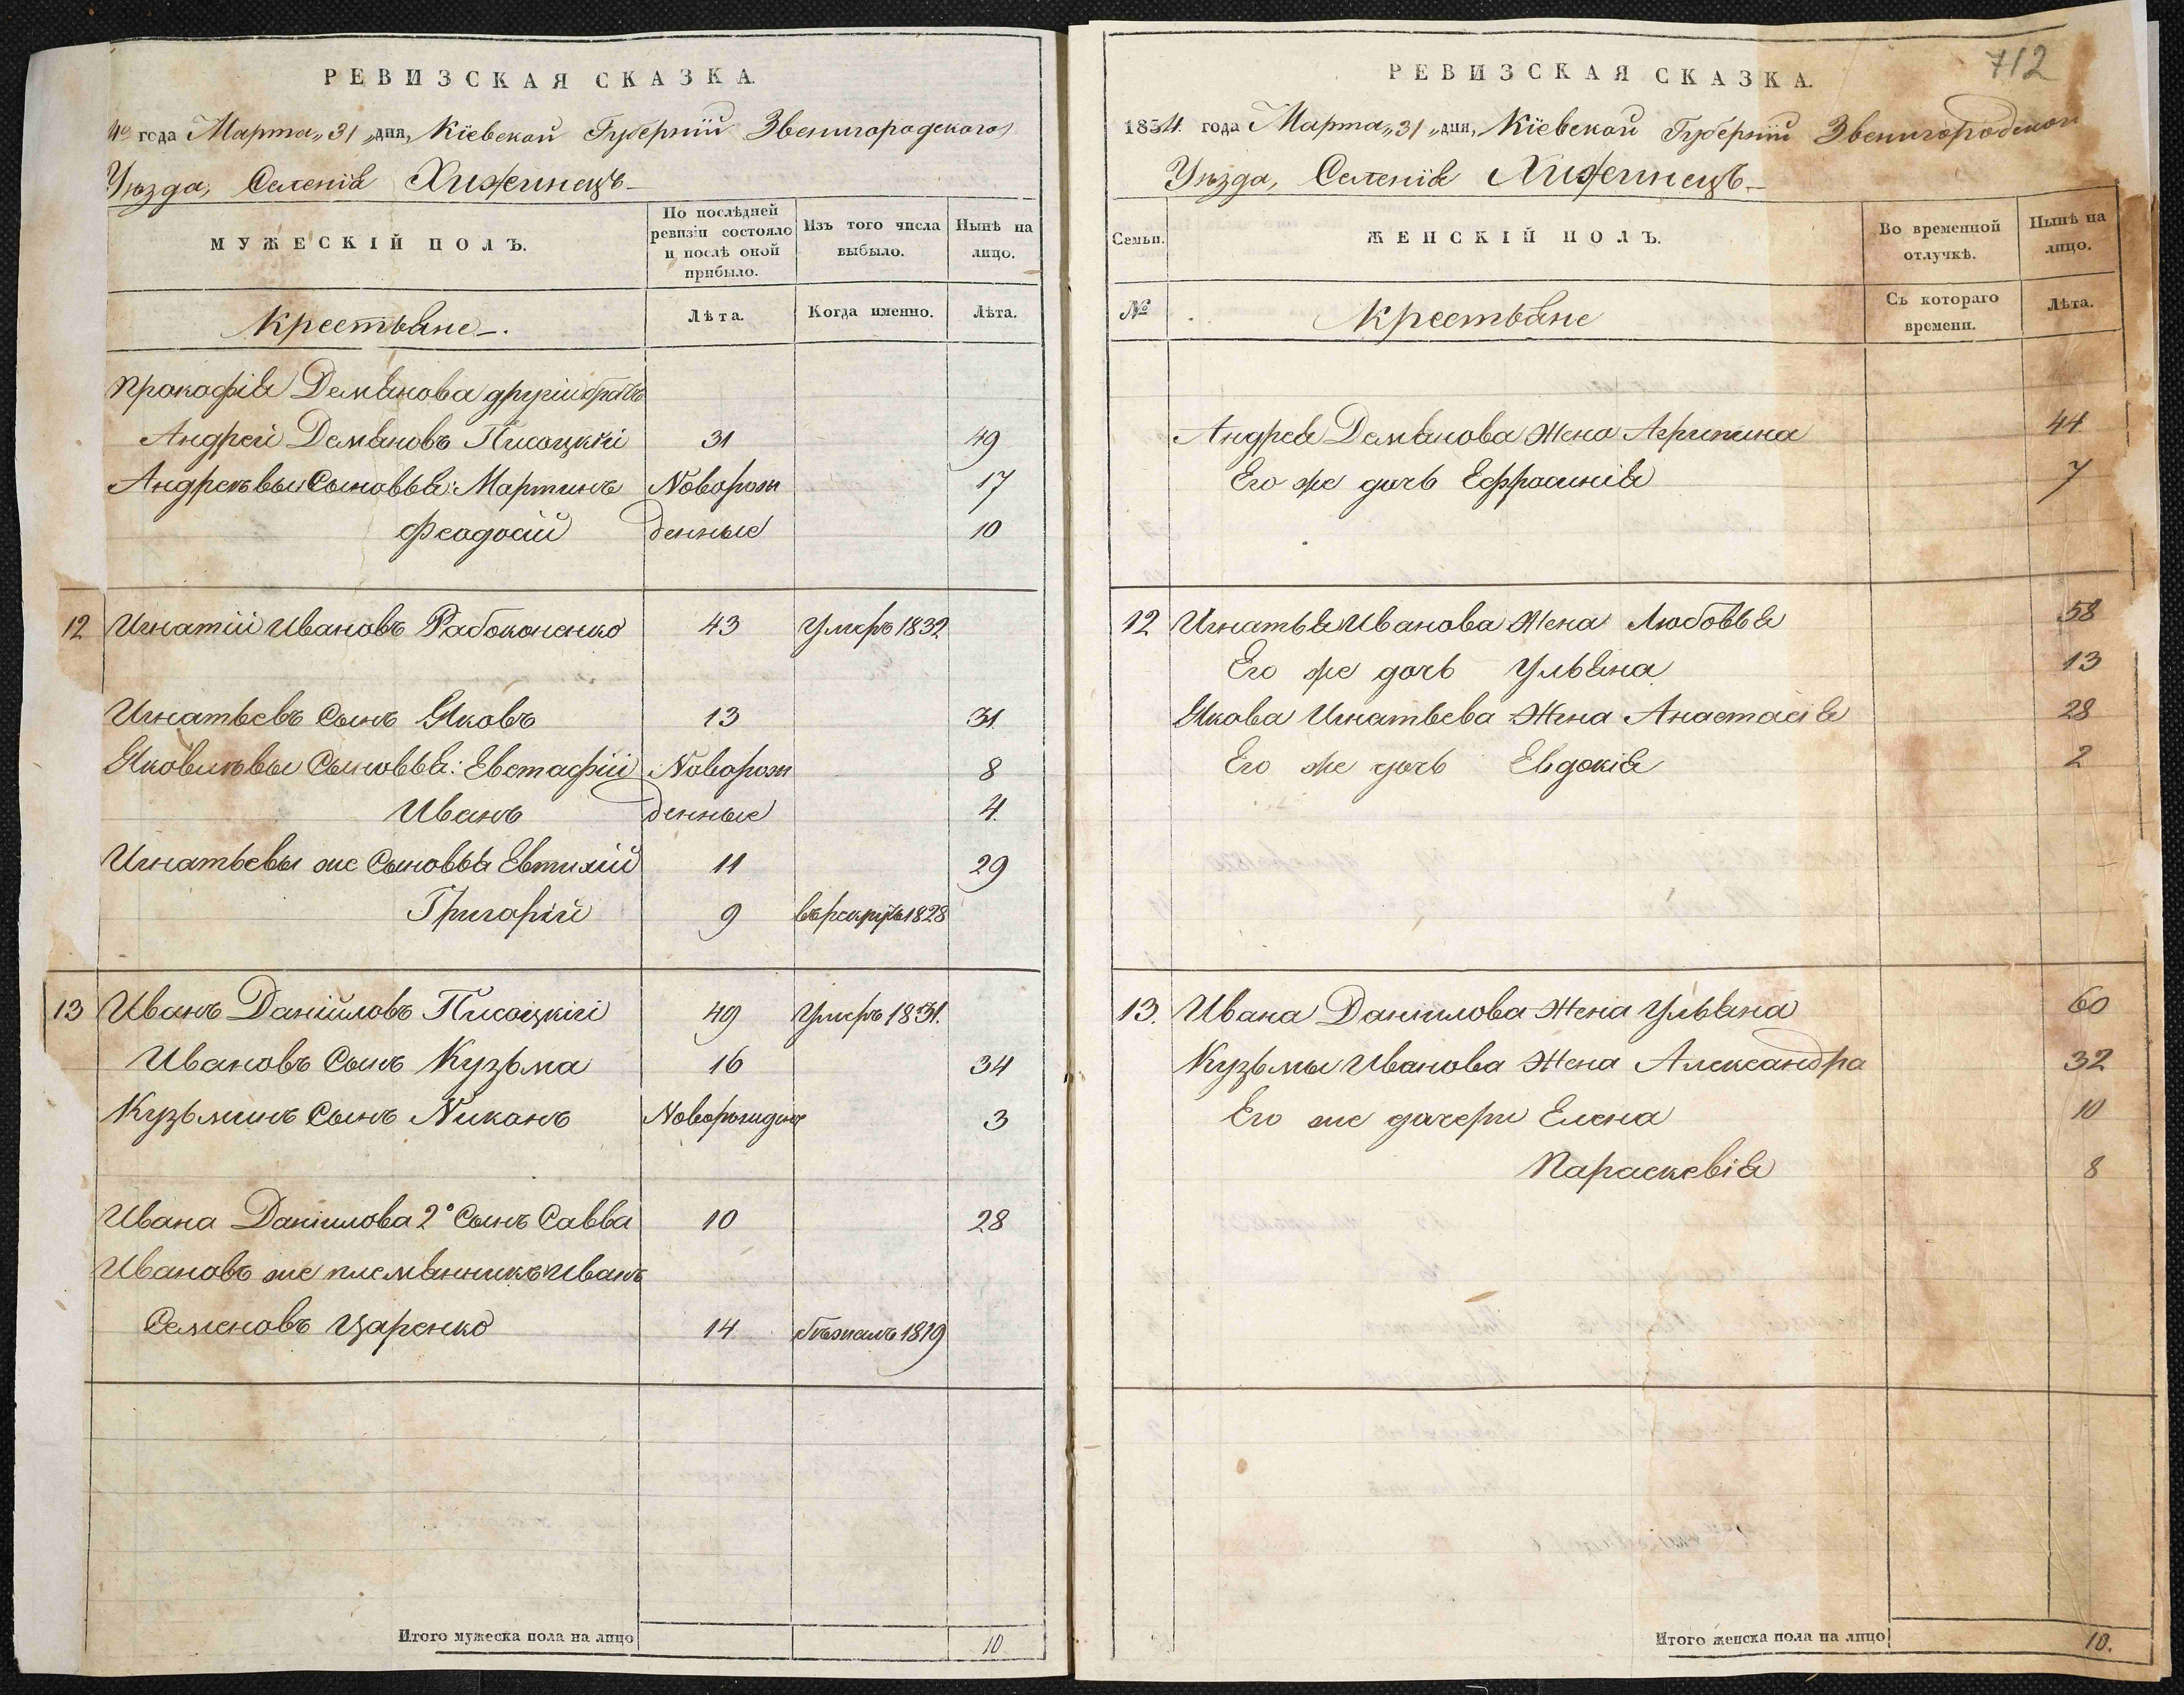 РЕВИЗСКАЯ СКАЗКА.
4го года Марта „31 „дня, Кіевской Губерніи Звенигородского
Уѣзда, Селенія Хижинецъ
МУЖЕСКІЙ ПОЛЪ.
По послѣдней ревизіи состояло и послѣ оной прибыло.
Изъ того числа выбыло.
Нынѣ на лицо.
Крестьяне.
Лѣта.
Когда именно.
Лѣта.
Прокофія Демянова другій братъ
Андрей Демяновъ Писоцкій 31 49
Андреевы Сыновья: Мартинъ Новорож 17
Феодосій денные 10
12 Игнатій Ивановъ Рабоконенко 43 Умеръ 1832
Игнатьевъ Сынъ Яковъ 13 31.
Яковлевы Сыновья: Евстафій Новорож 8
Иванъ денные 4.
Игнатьевы же Сыновья Евтихій 11 29
Григорій 9 въ рекруты 1828
13 Иванъ Даніиловъ Писоцкій 49 Умеръ 1831.
Ивановъ Сынъ Кузьма 16 34
Кузьминъ Сынъ Никонъ 3
Ивана Даніилова 2й Сынъ Савва 10 28
Ивановъ же племянникъ Иванъ
Семеновъ Царенко 14 бѣжалъ 1819
Итого мужеска пола на лицо 10
712
РЕВИЗСКАЯ СКАЗКА.
1834. года Марта „31 „дня, Кіевской Губерніи Звенигородскои
Уѣзда, Селенія Хижинецъ
Семьи.
ЖЕНСКІЙ ПОЛЪ.
Во временной отлучкѣ.
Нынѣ на лицо.
№
Крестьяне
Съ котораго времени.
Лѣта.
Андрея Демянова Жена Агрипина 44
Его же дочь Ефросинія 7
12 Игнатья Иванова Жена Любовья 58
Его же дочь Ульяна 13
Якова Игнатьева Жена Анастасія 28
Его же дочь Евдокія 2
13. Ивана Даніилова Жена Ульяна 60
Кузьмы Иванова Жена Александра 32
Его же дочери Елена 10
Параскевія 8
Итого женска пола на лицо 10.